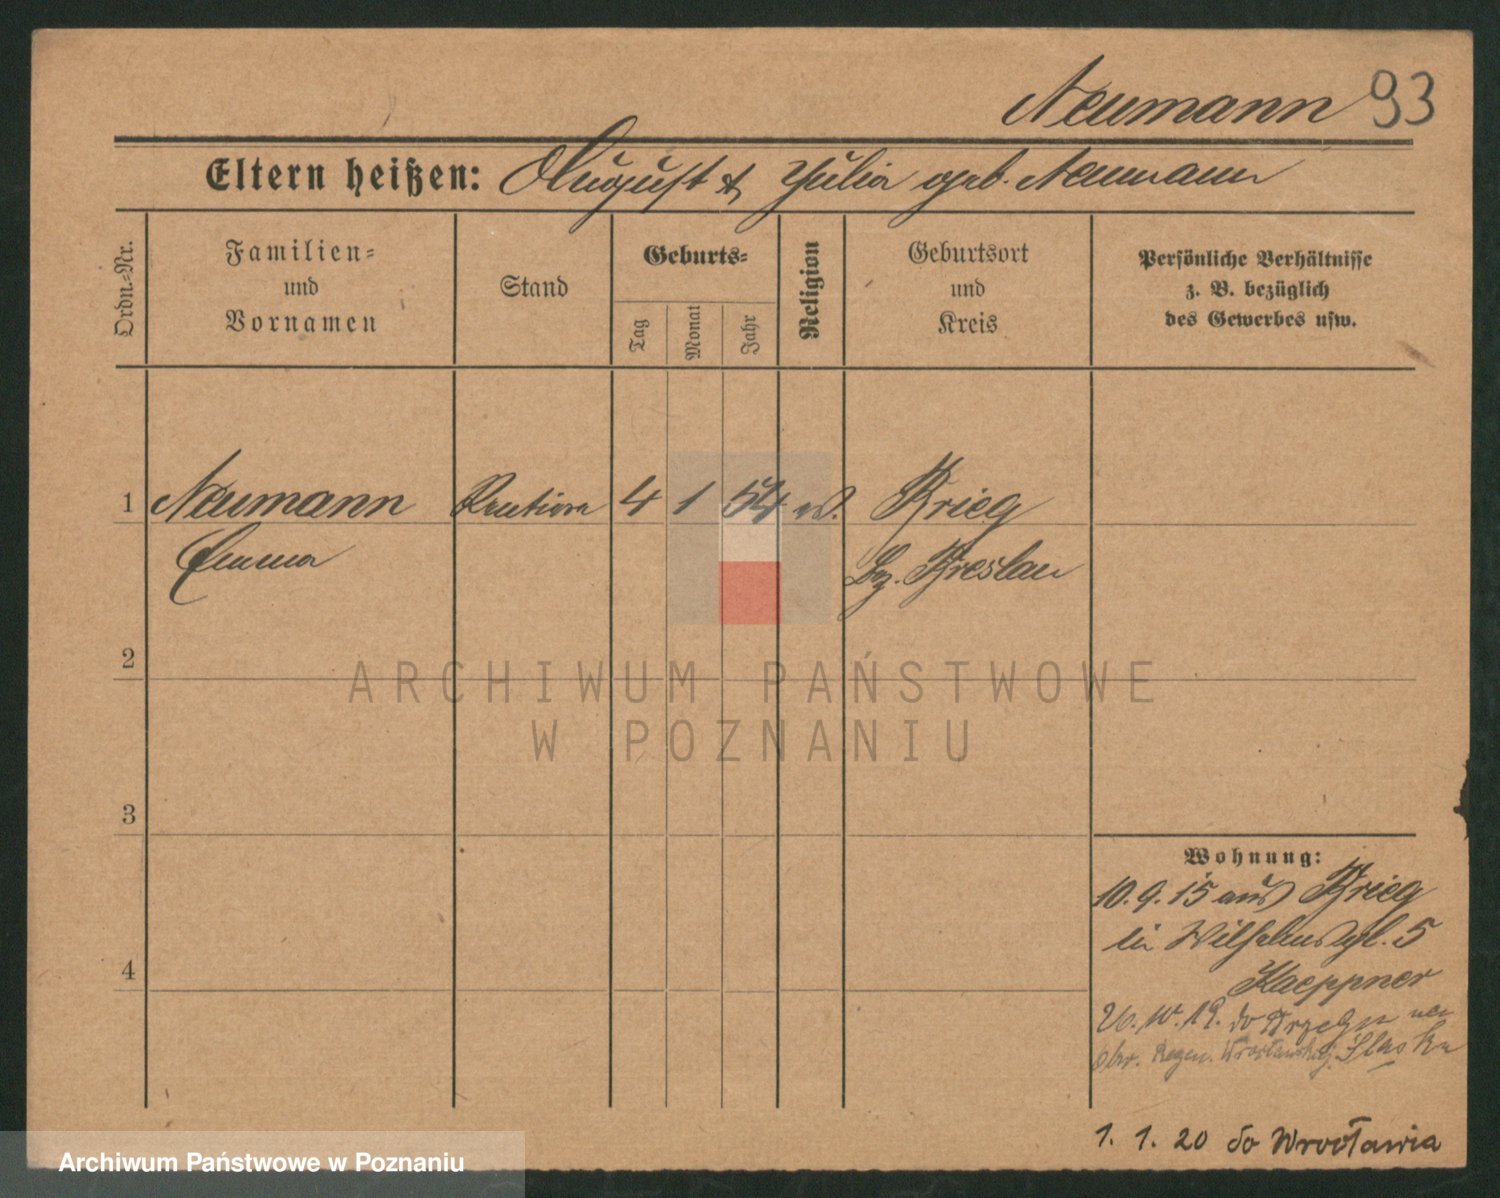 Neumann 93
Eltern heißen: August & Julia geb. Neumann
Ordn.-Nr.
Familien-
und
Vornamen
Stand
Geburts-
Tag
Monat
Jahr
Religion
Geburtsort
und
Kreis
Persönliche Verhältnisse
z. B. bezüglich
des Gewerbes usw.
1 Neumann Rentiere 4 1 54 ev. Brieg
Emma Bez. Breslau
2
3
4
Wohnung:
10.9.15 aus Brieg
in Wilhelmspl. 5
Kaeppner
10.19. do Brzegu na
Śląsku
1. 1. 20 do Wrocławia
ARCHIWUM PAŃSTWOWE
W POZNANIU
Archiwum Państwowe w Poznaniu